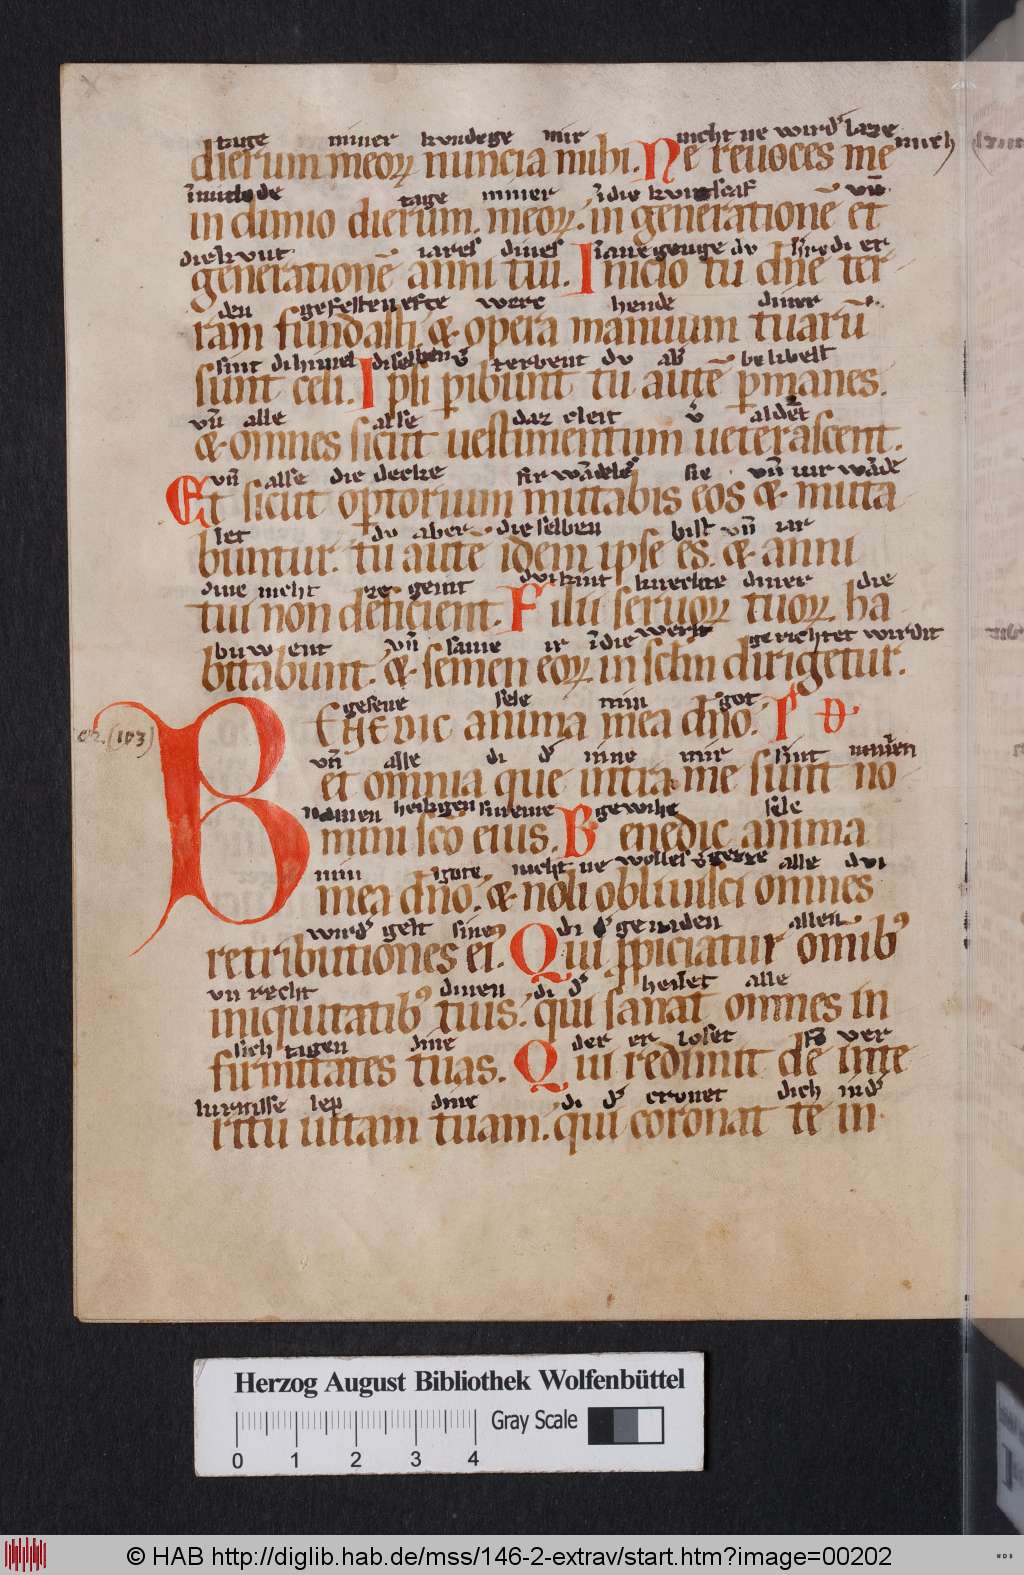 tage miner kundege mir nicht ne wird laze
dierum meoꝝ nuncia mihi. Ne reuoces me mich
tage miner vn̄
in dimio dierum. meoꝝ. in generationē et
iares dines
generationē anni tui. Inicio tu dn̄e ter
den gefestenteste werc hende diner
ram fundasti. & opera manuum tuarū
sint di himel diselben v̄ terbent du ab belibest
sunt celi. Ipsi ꝑibunt tu autē ꝑmanes.
vn̄ alle alse daz cleit aldet
& omnes sicut uestimentum ueterascent.
vn̄ alse die decke sie vn̄ uir wādē
Et sicut optorium mutabis eos & muta
set du aber die selben bist vn̄ iar
buntur. tu autē idem ipse es. & anni
dine nicht ze geint dvi kint knechte diner die
tui non deficient. Filii seruoꝝ tuoꝝ ha
buwent vn̄ same ir gerichtet wirdit
bitabunt. & semen eoꝝ in sclm dirigetur.
gesene sele min got
BENEDIC anima mea dn̄o. P D
ca. (103)
vn̄ alle di d' inne mir sint
et omnia que intra me sunt no
namen heiligen sineme sele
mini sc̄o eius. Benedic anima
min gote nicht ne wolles v̄gezze alle dvi
mea dn̄o. & noli obliuisci omnes
wird' gelt sines di d' genaden allen
retributiones ei. Qui ꝓpiciatur omīb'
vn recht dinen di d' heilet alle
iniquitatib' tuis. qui sanat omnes in
sich tagen dine der er loset ver
firmitates tuas. Qui redimit de inte
lep dine di d' cronet dich ind'
ritu uitam tuam. qui coronat te in
Herzog August Bibliothek Wolfenbüttel
Gray Scale
0 1 2 3 4
© HAB http://diglib.hab.de/mss/146-2-extrav/start.htm?image=00202